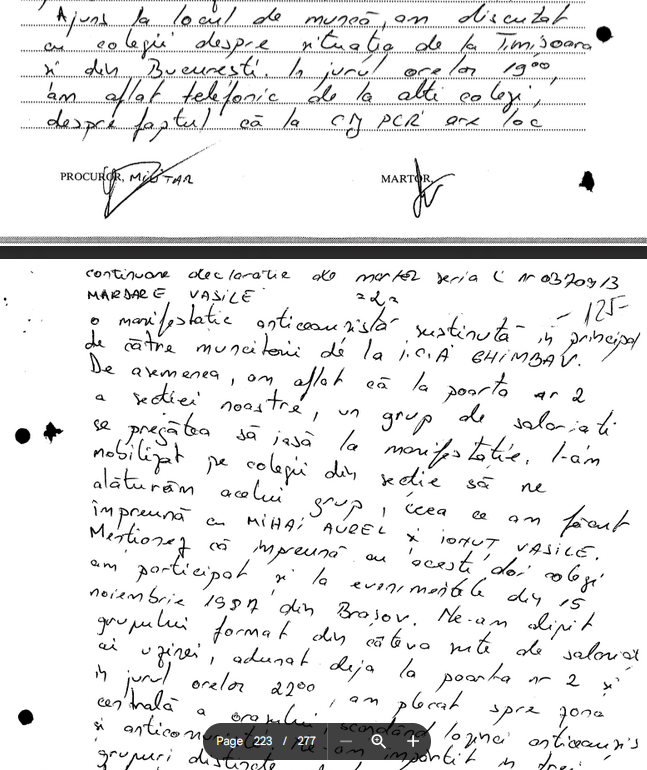 Ajuns la locul de muncă, am discutat
cu colegii despre situația de la Timișoara
și din București. În jurul orelor 19⁰⁰,
am aflat telefonic de la alți colegi,
despre faptul că la CJ PCR are loc
PROCUROR, MILITAR
MARTOR,
continuare declarație de martor seria C nr 0370913
MARDARE VASILE =2=
-125-
o manifestație anticeaușistă susținută în principal
de către muncitorii de la I.C.A GHIMBAV.
De asemenea, am aflat că la poarta nr 2
a secției noastre, un grup de salariați
se pregătea să iasă la manifestație. I-am
mobilizat pe colegii din secție să ne
alăturăm acelui grup, ceea ce am făcut
împreună cu MIHAI AUREL și IONUȚ VASILE.
Menționez că împreună cu acești doi colegi
am participat și la evenimentele din 15
noiembrie 1987 din Brașov. Ne-am alipit
grupului format din câteva sute de salariați
ai uzinei, adunat deja la poarta nr 2 și
în jurul orelor 22⁰⁰, am plecat spre zona
centrală a orașului, scandând lozinci anticeaușis
și
grupuri distincte
Page 223 / 277